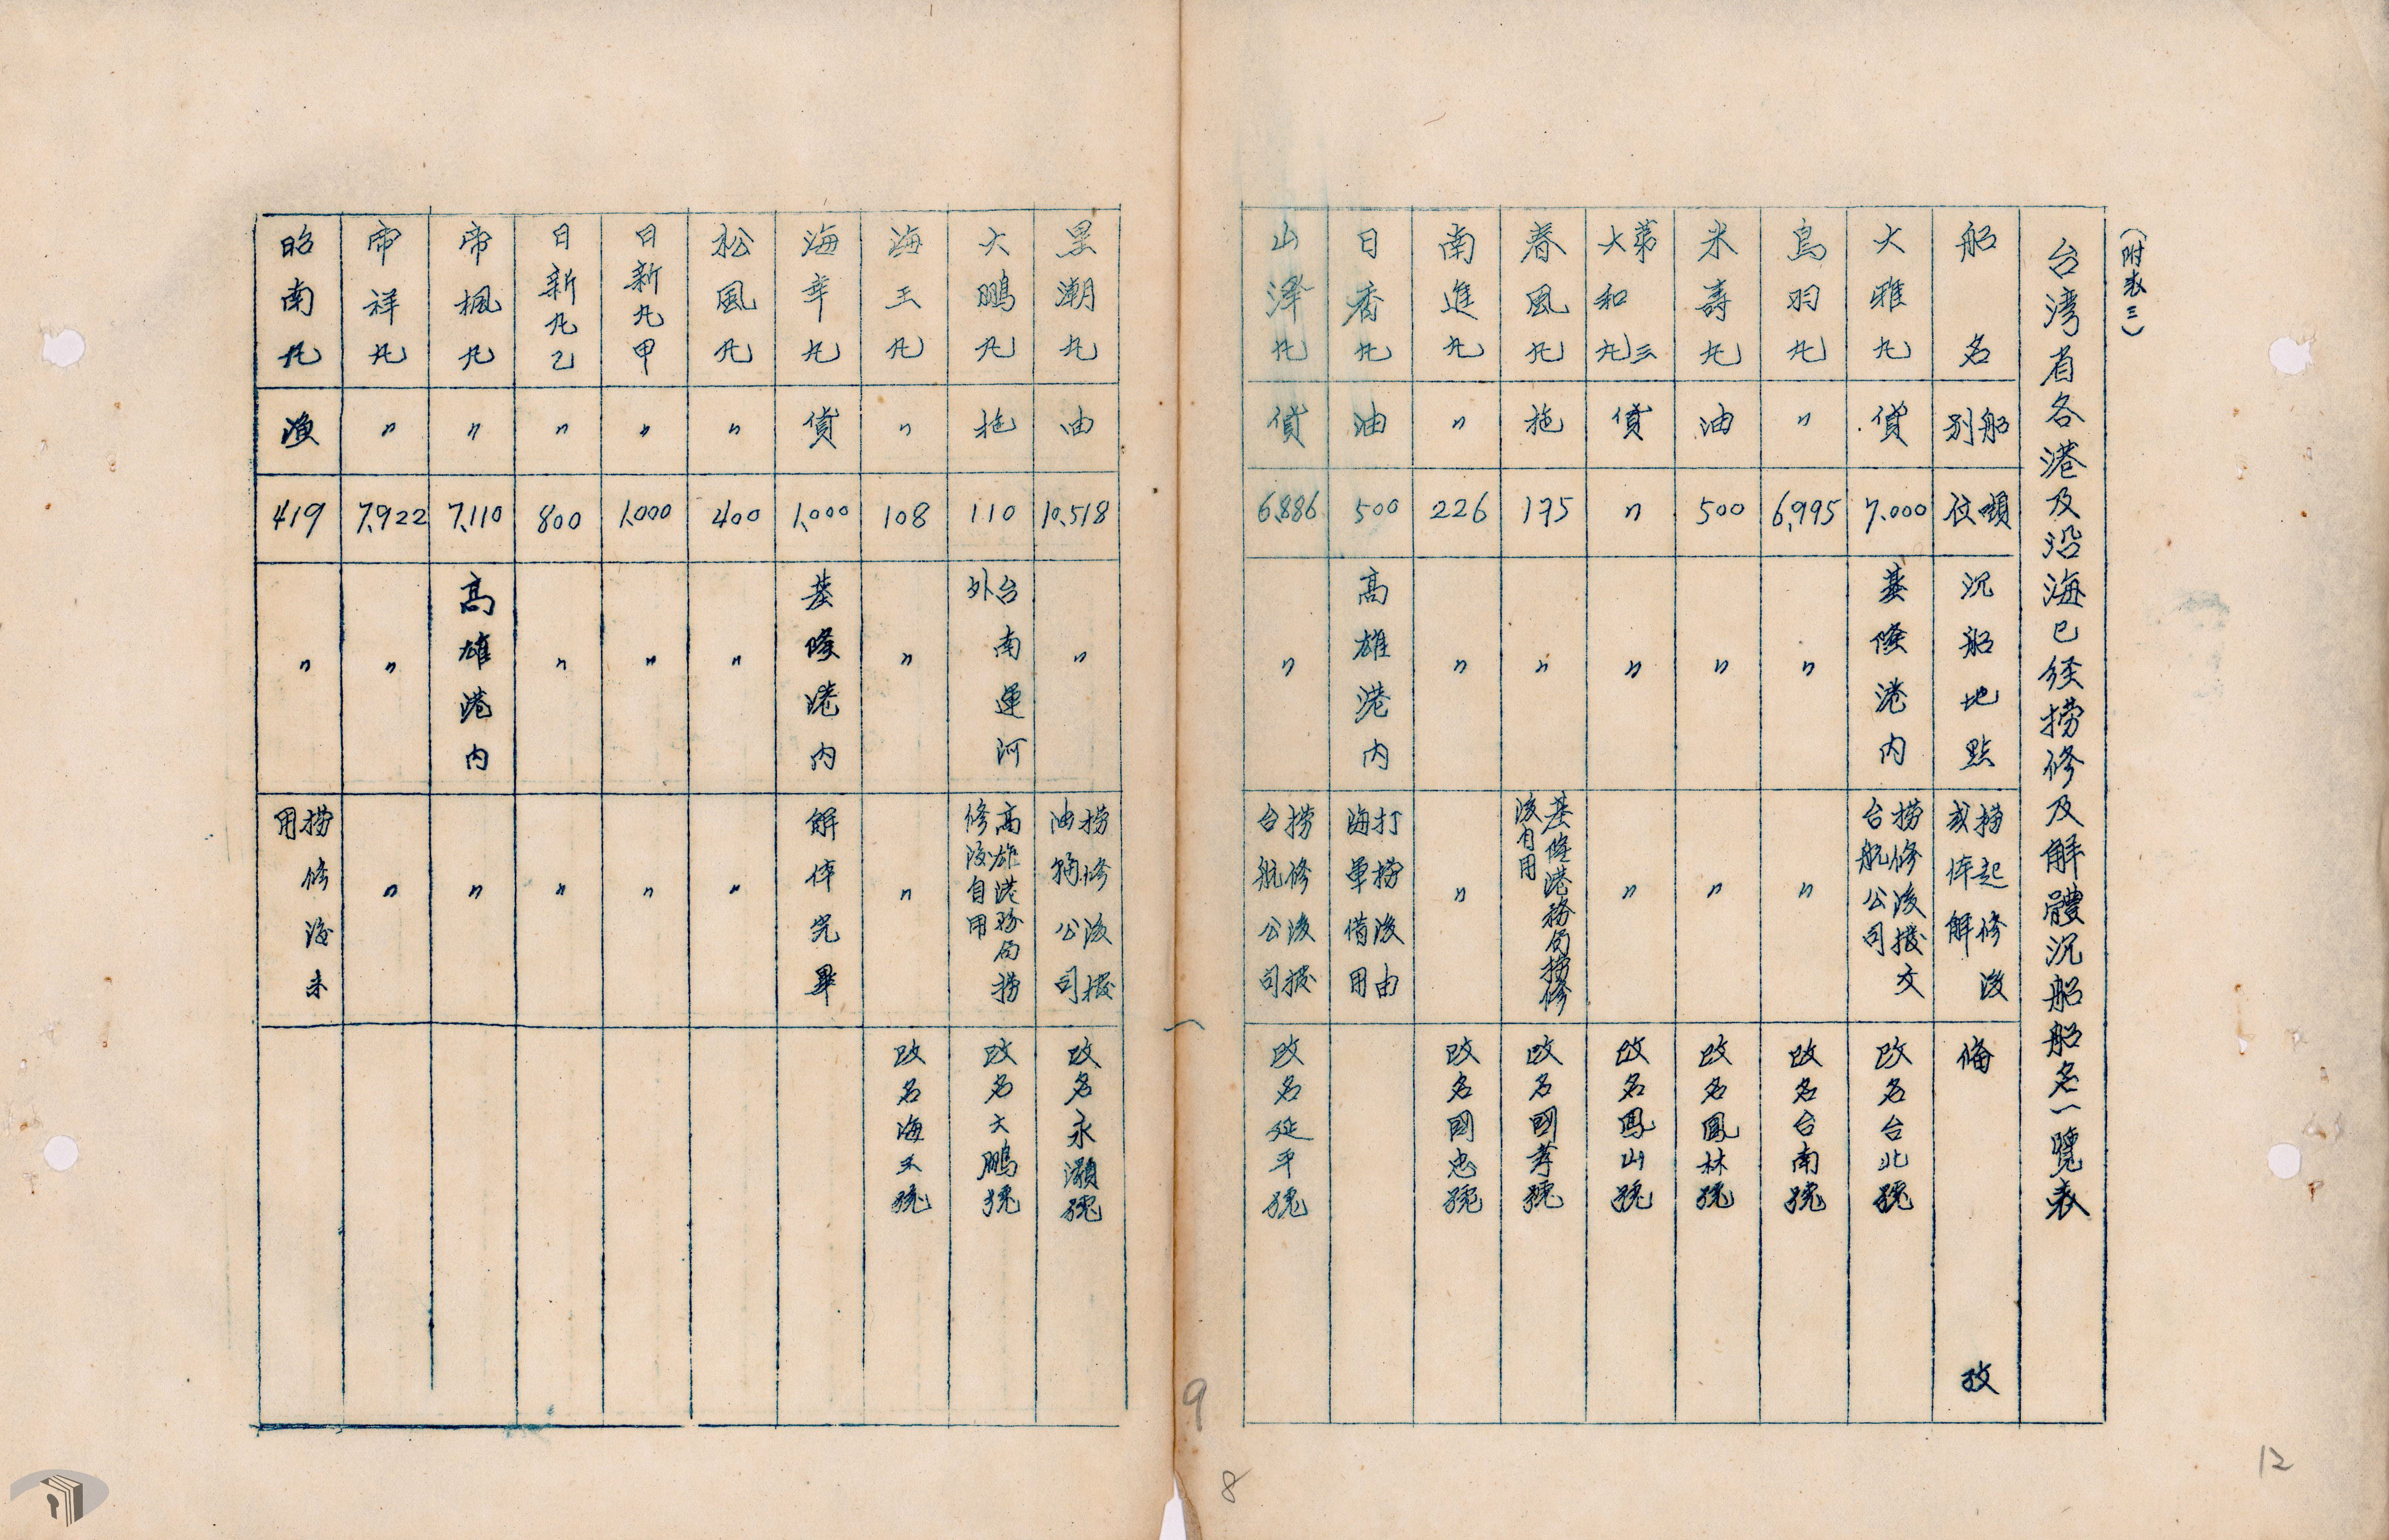 (附表三)
台湾省各港及沿海已経捞修及解體沉船船名一覽表
船名 船別 噸位 沉船地點 捞起修後或解体 備攷
大雅丸 貨 7,000 基隆港内 捞修後撥交台航公司 改名台北號
鳥羽丸 〃 6,995 〃 〃 改名台南號
米壽丸 油 500 〃 〃 改名鳳林號
第三大和丸 貨 〃 〃 〃 改名鳳山號
春風丸 拖 175 〃 基隆港務局捞修後自用 改名國孝號
南進丸 〃 226 〃 〃 改名國忠號
日香丸 油 500 高雄港内 打捞後由海軍借用
山澤丸 貨 6,886 〃 捞修後撥台航公司 改名延平號
黑潮丸 油 10,518 〃 捞修後撥油輪公司 改名永灝號
大鵬丸 拖 110 台南運河外 高雄港務局捞修後自用 改名大鵬號
海王丸 〃 108 〃 〃 改名海王號
海幸丸 貨 1,000 基隆港内 解体完畢
松風丸 〃 400 〃 〃
日新丸甲 〃 1,000 〃 〃
日新丸乙 〃 800 〃 〃
帝楓丸 〃 7,110 高雄港内 〃
帝祥丸 〃 7,922 〃 〃
昭南丸 漁 419 〃 捞修後未用
9
8
12